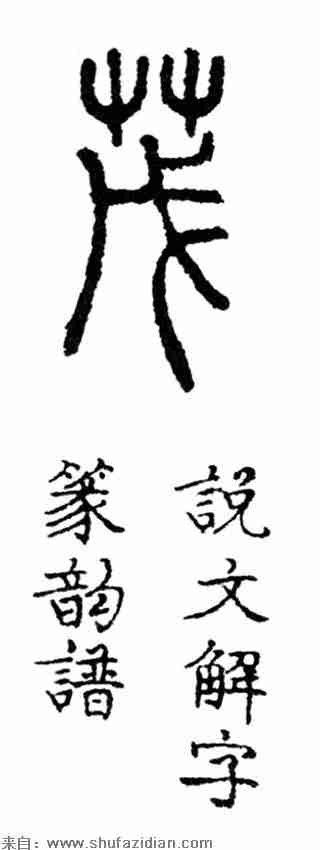 茂
說文解字
篆韵譜
来自：www.shufazidian.com